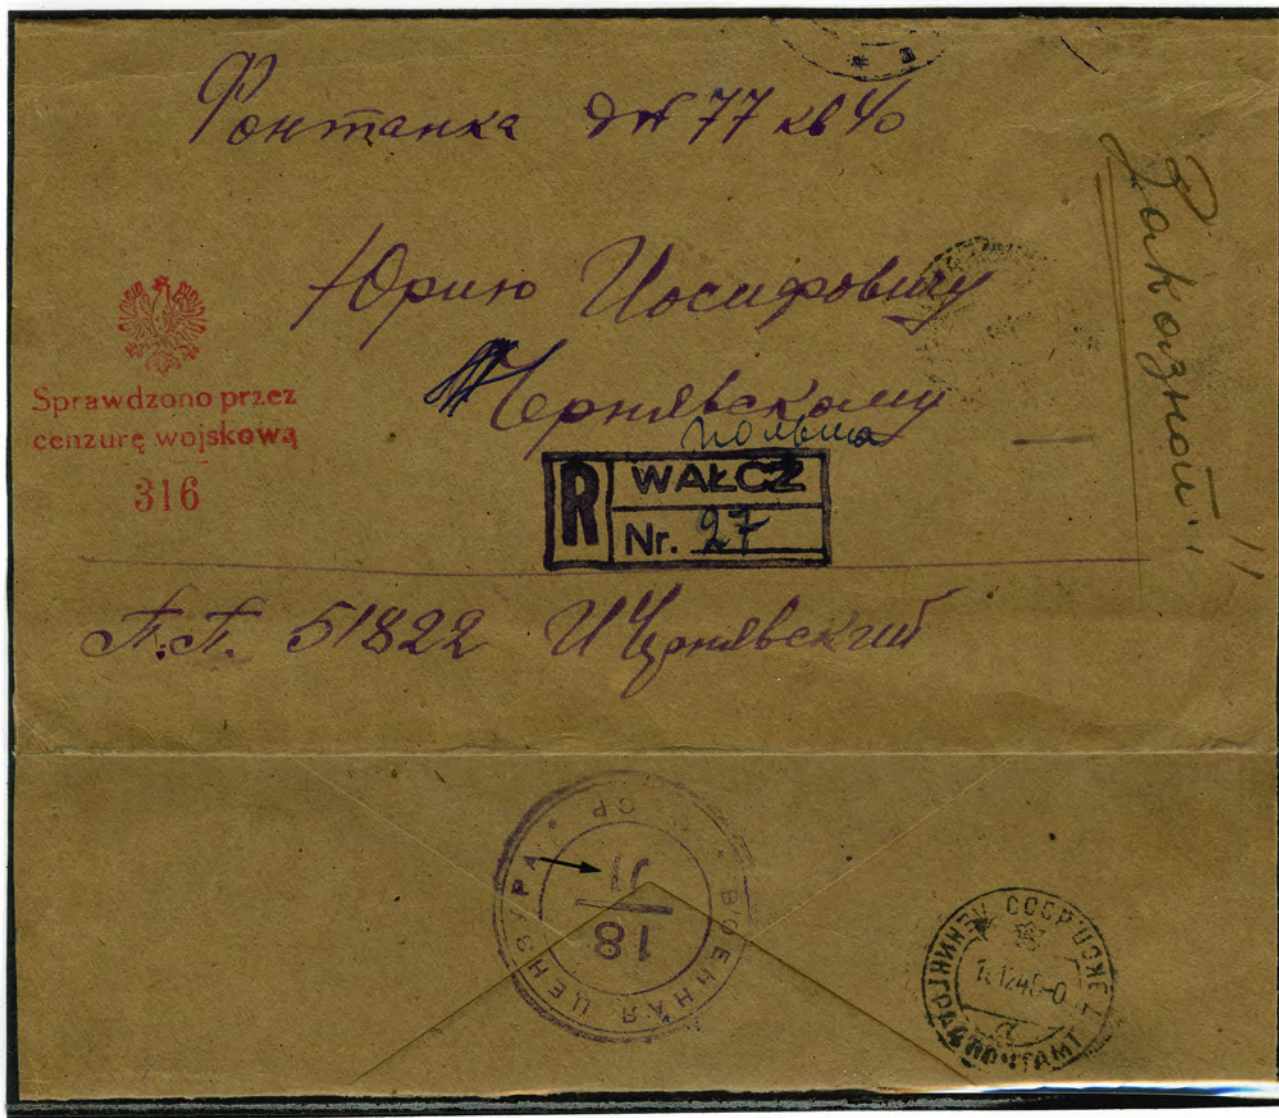 Фонтанка д№ 77 кв 40
Юрию Иосифовичу
Чернявскому
польша
Заказной
Sprawdzono przez
cenzurę wojskową
316
R WAŁCZ
Nr. 27
П.П. 51822 И Чернявский
ВОЕННАЯ ЦЕНЗУРА
18
ЛЕНИНГРАД ПОЧТАМТ
СССР
а